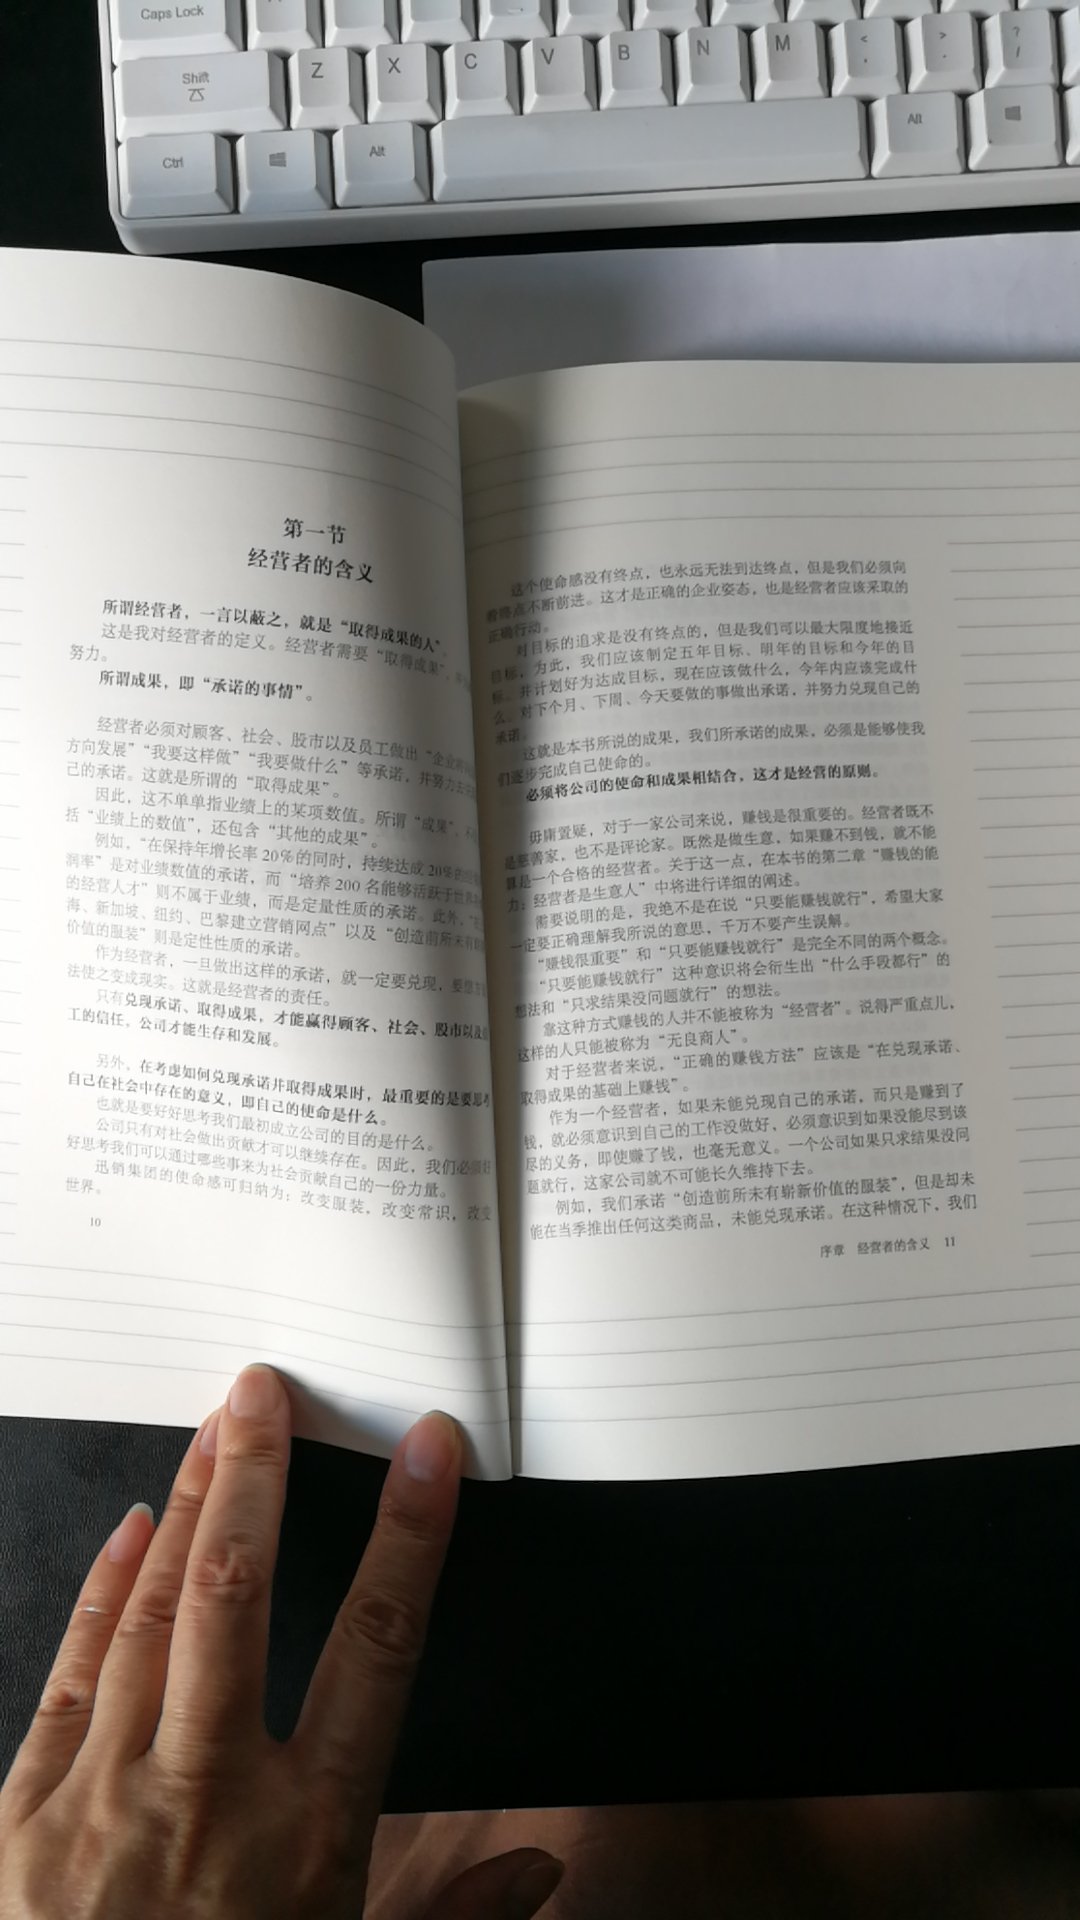 Caps Lock
Shift
Z
X
C
V
B
N
M
<
,
>
.
?
/
Ctrl
Alt
Alt
第一节
经营者的含义
所谓经营者，一言以蔽之，就是“取得成果的人”。
这是我对经营者的定义。经营者需要“取得成果”，
努力。
所谓成果，即“承诺的事情”。
经营者必须对顾客、社会、股市以及员工做出“企业
方向发展”“我要这样做”“我要做什么”等承诺，并努力
己的承诺。这就是所谓的“取得成果”。
因此，这不单单指业绩上的某项数值。所谓“成果”，
括“业绩上的数值”，还包含“其他的成果”。
例如，“在保持年增长率20%的同时，持续达成20%的
润率”是对业绩数值的承诺，而“培养200名能够活跃于
的经营人才”则不属于业绩，而是定量性质的承诺。此外，
海、新加坡、纽约、巴黎建立营销网点”以及“创造前所未有
价值的服装”则是定性性质的承诺。
作为经营者，一旦做出这样的承诺，就一定要兑现，要想
法使之变成现实。这就是经营者的责任。
只有兑现承诺、取得成果，才能赢得顾客、社会、股市以及
工的信任，公司才能生存和发展。
另外，在考虑如何兑现承诺并取得成果时，最重要的是要思考
自己在社会中存在的意义，即自己的使命是什么。
也就是要好好思考我们最初成立公司的目的是什么。
公司只有对社会做出贡献才可以继续存在。因此，我们必须好
好思考我们可以通过哪些事来为社会贡献自己的一份力量。
迅销集团的使命感可归纳为：改变服装，改变常识，改变
世界。
10
这个使命感没有终点，也永远无法到达终点，但是我们必须向
着终点不断前进。这才是正确的企业姿态，也是经营者应该采取的
正确行动。
对目标的追求是没有终点的，但是我们可以最大限度地接近
目标，为此，我们应该制定五年目标、明年的目标和今年的目
标，并计划好为达成目标，现在应该做什么，今年内应该完成什
么，对下个月、下周、今天要做的事做出承诺，并努力兑现自己的
承诺。
这就是本书所说的成果，我们所承诺的成果，必须是能够使我
们逐步完成自己使命的。
必须将公司的使命和成果相结合，这才是经营的原则。
毋庸置疑，对于一家公司来说，赚钱是很重要的。经营者既不
是慈善家，也不是评论家。既然是做生意，如果赚不到钱，就不能
算是一个合格的经营者。关于这一点，在本书的第二章“赚钱的能
力：经营者是生意人”中将进行详细的阐述。
需要说明的是，我绝不是在说“只要能赚钱就行”，希望大家
一定要正确理解我所说的意思，千万不要产生误解。
“赚钱很重要”和“只要能赚钱就行”是完全不同的两个概念。
“只要能赚钱就行”这种意识将会衍生出“什么手段都行”的
想法和“只求结果没问题就行”的想法。
靠这种方式赚钱的人并不能被称为“经营者”。说得严重点儿，
这样的人只能被称为“无良商人”。
对于经营者来说，“正确的赚钱方法”应该是“在兑现承诺、
取得成果的基础上赚钱”。
作为一个经营者，如果未能兑现自己的承诺，而只是赚到了
钱，就必须意识到自己的工作没做好，必须意识到如果没能尽到该
尽的义务，即使赚了钱，也毫无意义。一个公司如果只求结果没问
题就行，这家公司就不可能长久维持下去。
例如，我们承诺“创造前所未有崭新价值的服装”，但是却未
能在当季推出任何这类商品，未能兑现承诺。在这种情况下，我们
序章 经营者的含义 11